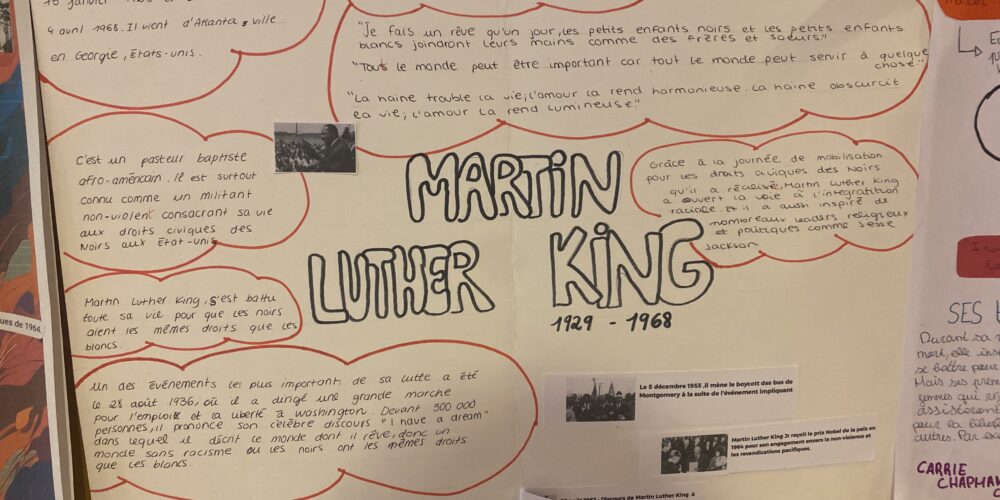 4 avril 1968. Il vient d'Atlanta, ville
en Georgie, États-unis.
"Je fais un rêve qu'un jour, les petits enfants noirs et les petits enfants
blancs joindront leurs mains comme des frères et soeurs."
"Tout le monde peut être important car tout le monde peut servir à quelque
chose."
"La haine trouble la vie; l'amour la rend harmonieuse. La haine obscurcit
la vie; l'amour la rend lumineuse."
C'est un pasteur baptiste
afro-américain. Il est surtout
connu comme un militant
non-violent consacrant sa vie
aux droits civiques des
Noirs aux État-unis
MARTIN
LUTHER KING
1929 - 1968
Grâce à la journée de mobilisation
pour les droits civiques des Noirs
qu'il a réalisée, Martin Luther King
a ouvert la voie à l'intégratition
raciale et il a aussi inspiré de
nombreaux leaders religieux
et politiques comme Jesse
Jackson
Martin Luther King, s'est battu
toute sa vie pour que les noirs
aient les mêmes droits que les
blancs.
Un des événements les plus important de sa lutte a été
le 28 août 1936, où il a dirigé une grande marche
pour l'emploi et la liberté à Washington. Devant 300 000
personnes, il prononce son célèbre discours "I have a dream"
dans lequel il décrit le monde dont il rêve, donc un
monde sans racisme où les noirs ont les mêmes droits
que les blancs.
Le 5 décembre 1955 ,il mène le boycott des bus de
Montgomery à la suite de l'événement impliquant
Martin Luther King Jr reçoit le prix Nobel de la paix en
1964 pour son engagement envers la non-violence et
les revendications pacifiques.
Discours de Martin Luther King à
ques de 1964,
SES
Durant sa
mort, elle
se battre pour
Mais ses
femmes qui
pour la
autres. Par
CARRIE
CHAPMAN